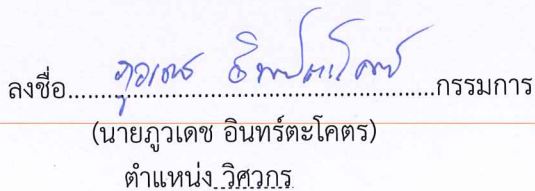 ลงชื่อ..........ภูวเดช อินทร์ตะโคตร..........กรรมการ
(นายภูวเดช อินทร์ตะโคตร)
ตำแหน่ง วิศวกร